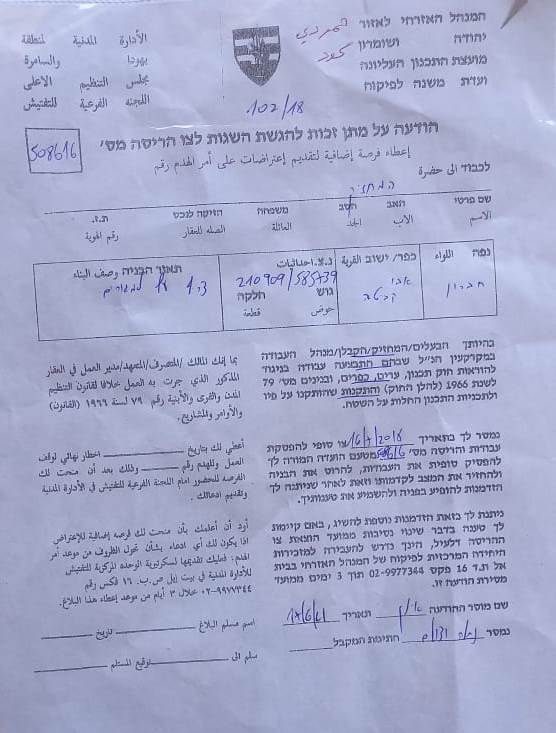 המנהל האזרחי לאזור
יהודה ושומרון
מועצת התכנון העליונה
ועדת משנה לפיקוח
الأدارة المدنية لمنطقة
يهودا والسامرة
مجلس التنظيم الاعلى
اللجنه الفرعية للتفتيش
102/18
הודעה על מתן זכות להגשת השגות לצו הריסה מס'
508616
إعطاء فرصة إضافية لتقديم إعتراضات على أمر الهدم رقم
لكبود الى حضرة
המחזיק
שם פרטי האב הסב משפחה הזיקה לנכס ת.ז.
الاسم الاب الجد العائلة الصله للعقار رقم الهوية
נפה اللواء כפר/ ישוב القرية נ.צ. احداثيات תאור הבניה وصف البناء
חברון
210909/585739
גוש חלקה
حوض قطعة
בהיותך הבעלים/המחזיק/הקבלן/מנהל העבודה
במקרקעין הנ"ל שבהם התבצעה עבודה בניגוד
להוראות חוק תכנון, ערים, כפרים, ובנינים מס' 79
לשנת 1966 (להלן החוק) והתקנות שהותקנו על פיו
ולתכניות התכנון החלות על השטח.
بما إنك المالك /المتصرف/المتعهد/مدير العمل في العقار
المذكور الذي جرت به العمل خلافا لقانون التنظيم
المدن والقرى والأبنية رقم ٧٩ لسنة ١٩٦٦ (القانون)
والأوامر والمشاريع.
נמסר לך בתאריך צו סופי להפסקת
עבודה והריסה מס' 508616 מטעם הועדה המורה לך
להפסיק סופית את העבודות, להרוס את הבניה
ולהחזיר את המצב לקדמותו וזאת לאחר שניתנה לך
הזדמנות להופיע בפניה ולהשמיע את טענותיך.
أعطي لك بتاريخ إخطار نهائي لوقف
العمل وللهدم رقم وذلك بعد أن منحت لك
الفرصه للحضور امام اللجنة الفرعية للتفتيش في الأدارة المدنية
وتقديم ادعائك.
ניתנת לך בזאת הזדמנות נוספת להשיג, באם קיימת
לך טענה בדבר שינוי נסיבות ממועד הוצאת צו
ההריסה דלעיל, הינך נדרש להעבירה למזכירות
היחידה המרכזית לפיקוח של המנהל האזרחי בבית
אל ת.ד 16 פקס 02-9977344 תוך 3 ימים ממועד
מסירת הודעה זו.
أود أن أعلمك بأن منحت لك فرصه إضافية للإعتراض
اذا يكون لك أي ادعاء بشأن تحول الظروف من موعد أمر
الهدم، فعليك تقديمها لسكرتورية الوحدة المركزية للتفتيش
للأدارة المدنية في بيت إيل ص.ب. ١٦ فاكس رقم
٠٢-٩٩٧٧٣٤٤ خلال ٣ أيام من موعد إعطاء هذا البلاغ.
שם מוסר ההודעה תאריך
נמסר חתימת המקבל
اسم مسلم البلاغ تاريخ
سلم الى توقيع المستلم